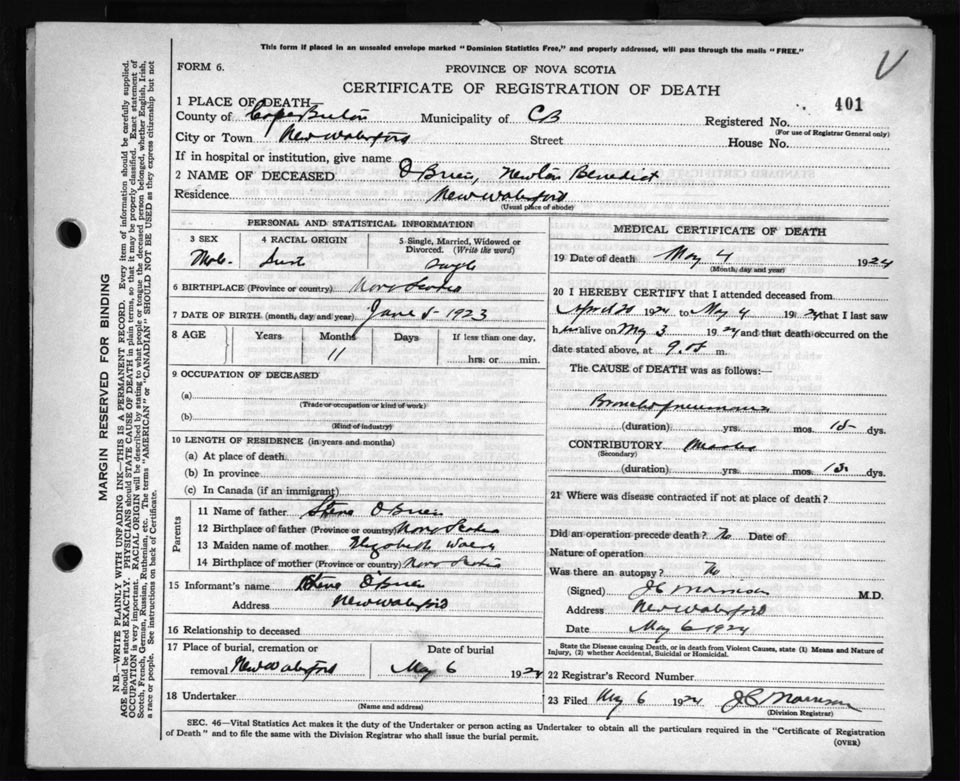 This form if placed in an unsealed envelope marked "Dominion Statistics Free," and properly addressed, will pass through the mails "FREE."
V
FORM 6.
PROVINCE OF NOVA SCOTIA
CERTIFICATE OF REGISTRATION OF DEATH
401
1 PLACE OF DEATH
County of Cape Breton Municipality of CB Registered No.
(For use of Registrar General only)
City or Town New Waterford Street House No.
If in hospital or institution, give name
2 NAME OF DECEASED O'Brien, Newton Benedict
Residence New Waterford
(Usual place of abode)
PERSONAL AND STATISTICAL INFORMATION
3 SEX Male
4 RACIAL ORIGIN
5 Single, Married, Widowed or Divorced. (Write the word) Single
6 BIRTHPLACE (Province or country) Nova Scotia
7 DATE OF BIRTH (month, day and year) June 5-1923
8 AGE Years Months Days If less than one day,
11 hrs. or min.
9 OCCUPATION OF DECEASED
(a)
(Trade or occupation or kind of work)
(b)
(Kind of industry)
10 LENGTH OF RESIDENCE (in years and months)
(a) At place of death
(b) In province
(c) In Canada (if an immigrant)
Parents
11 Name of father Steve O'Brien
12 Birthplace of father (Province or country) Nova Scotia
13 Maiden name of mother Elizabeth
14 Birthplace of mother (Province or country) Nova Scotia
15 Informant's name Steve O'Brien
Address New Waterford
16 Relationship to deceased
17 Place of burial, cremation or Date of burial
removal New Waterford May 6 1924
18 Undertaker
(Name and address)
MEDICAL CERTIFICATE OF DEATH
19 Date of death May 4 1924
(Month, day and year)
20 I HEREBY CERTIFY that I attended deceased from
April 20 1924 to May 4 1924 that I last saw
him alive on May 3 1924 and that death occurred on
date stated above, at m.
The CAUSE of DEATH was as follows:—
Broncho pneumonia
(duration) yrs. mos. 15 dys.
CONTRIBUTORY Measles
(Secondary)
(duration) yrs. mos. dys.
21 Where was disease contracted if not at place of death?
Did an operation precede death? No Date of
Nature of operation
Was there an autopsy? No
(Signed) J C Morrison M.D.
Address New Waterford
Date May 6 1924
State the Disease causing Death, or in death from Violent Causes, state (1) Means and Nature of
Injury, (2) whether Accidental, Suicidal or Homicidal.
22 Registrar's Record Number
23 Filed May 6 1924 J C Morrison
(Division Registrar)
SEC. 46—Vital Statistics Act makes it the duty of the Undertaker or person acting as Undertaker to obtain all the particulars required in the "Certificate of Registration
of Death" and to file the same with the Division Registrar who shall issue the burial permit.
(OVER)
MARGIN RESERVED FOR BINDING
N.B.—WRITE PLAINLY WITH UNFADING INK—THIS IS A PERMANENT RECORD. Every item of information should be carefully supplied.
AGE should be stated EXACTLY. PHYSICIANS should STATE CAUSE OF DEATH in plain terms, so that it may be properly classified. Exact statement of
OCCUPATION is very important. RACIAL ORIGIN will be described by stating to what people or tongue the deceased person belonged, whether English, Irish,
Scotch, French, German, Russian, Ruthenian, etc. The terms "AMERICAN" or "CANADIAN" SHOULD NOT BE USED as they express citizenship but not
a race or people. See instructions on back of Certificate.